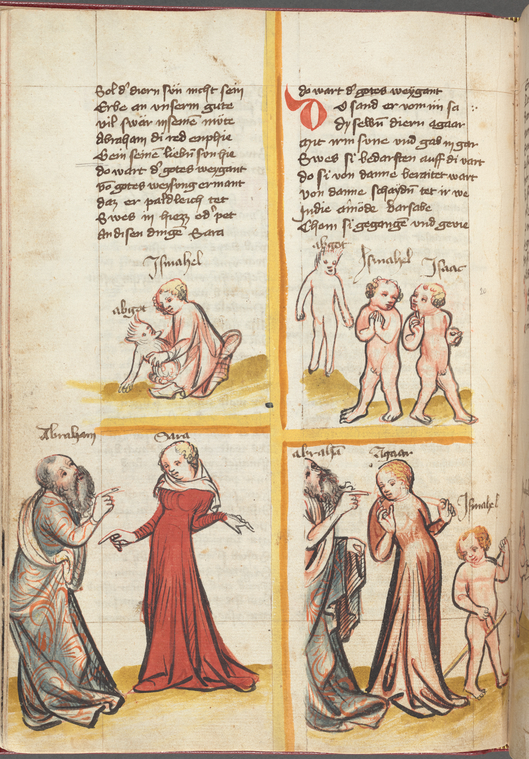 Sol d͛ diern sün nicht sein
Erbe an vnserm gute
vil swär in seinē můte
Abraham di red enphie
Gein seinē liebn̄ sun hie
do wart d͛ gotes weygant
vō gotes weysūg ermant
daz er paldleich tet
Swes in hiez od͛ pet
An disen dingē Sara
Ismahel
abgot
Do wart d͛ gotes weygant
sand er von im sa
dy selbn̄ diern agaar
mit irm sune vnd gab in gar
Swes si bedarften auff di vart
do si von danne beraitet wart
von danne schaydn̄ tet ir we
In die ainöde barsabe
Chom si gegangē vnd gevie
abgot
Ismahel
Isaac
Abraham
Sara
abrahā
Agaar
Ismahel